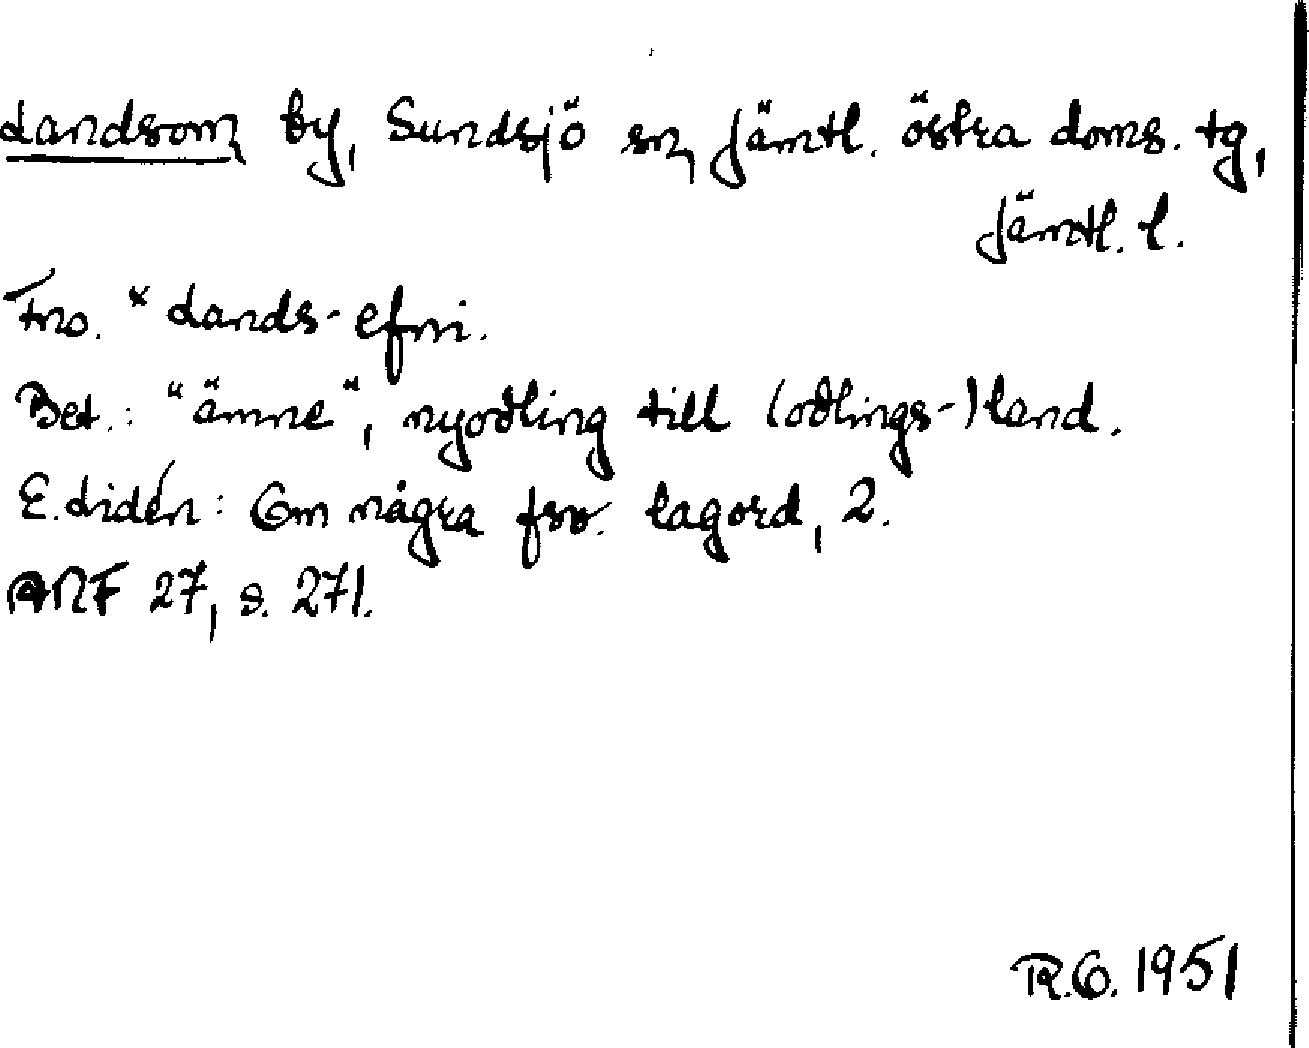 Landsom, by, Sundsjö sn, Jämtl. östra doms. tg,
Jämtl. l.
Fno. *Lands-efni.
Bet.: "ämne", nyodling till (odlings-)land.
E. Lidén: Om några fsv. lagord, 2.
ANF 27, s. 271.
R.O. 1951